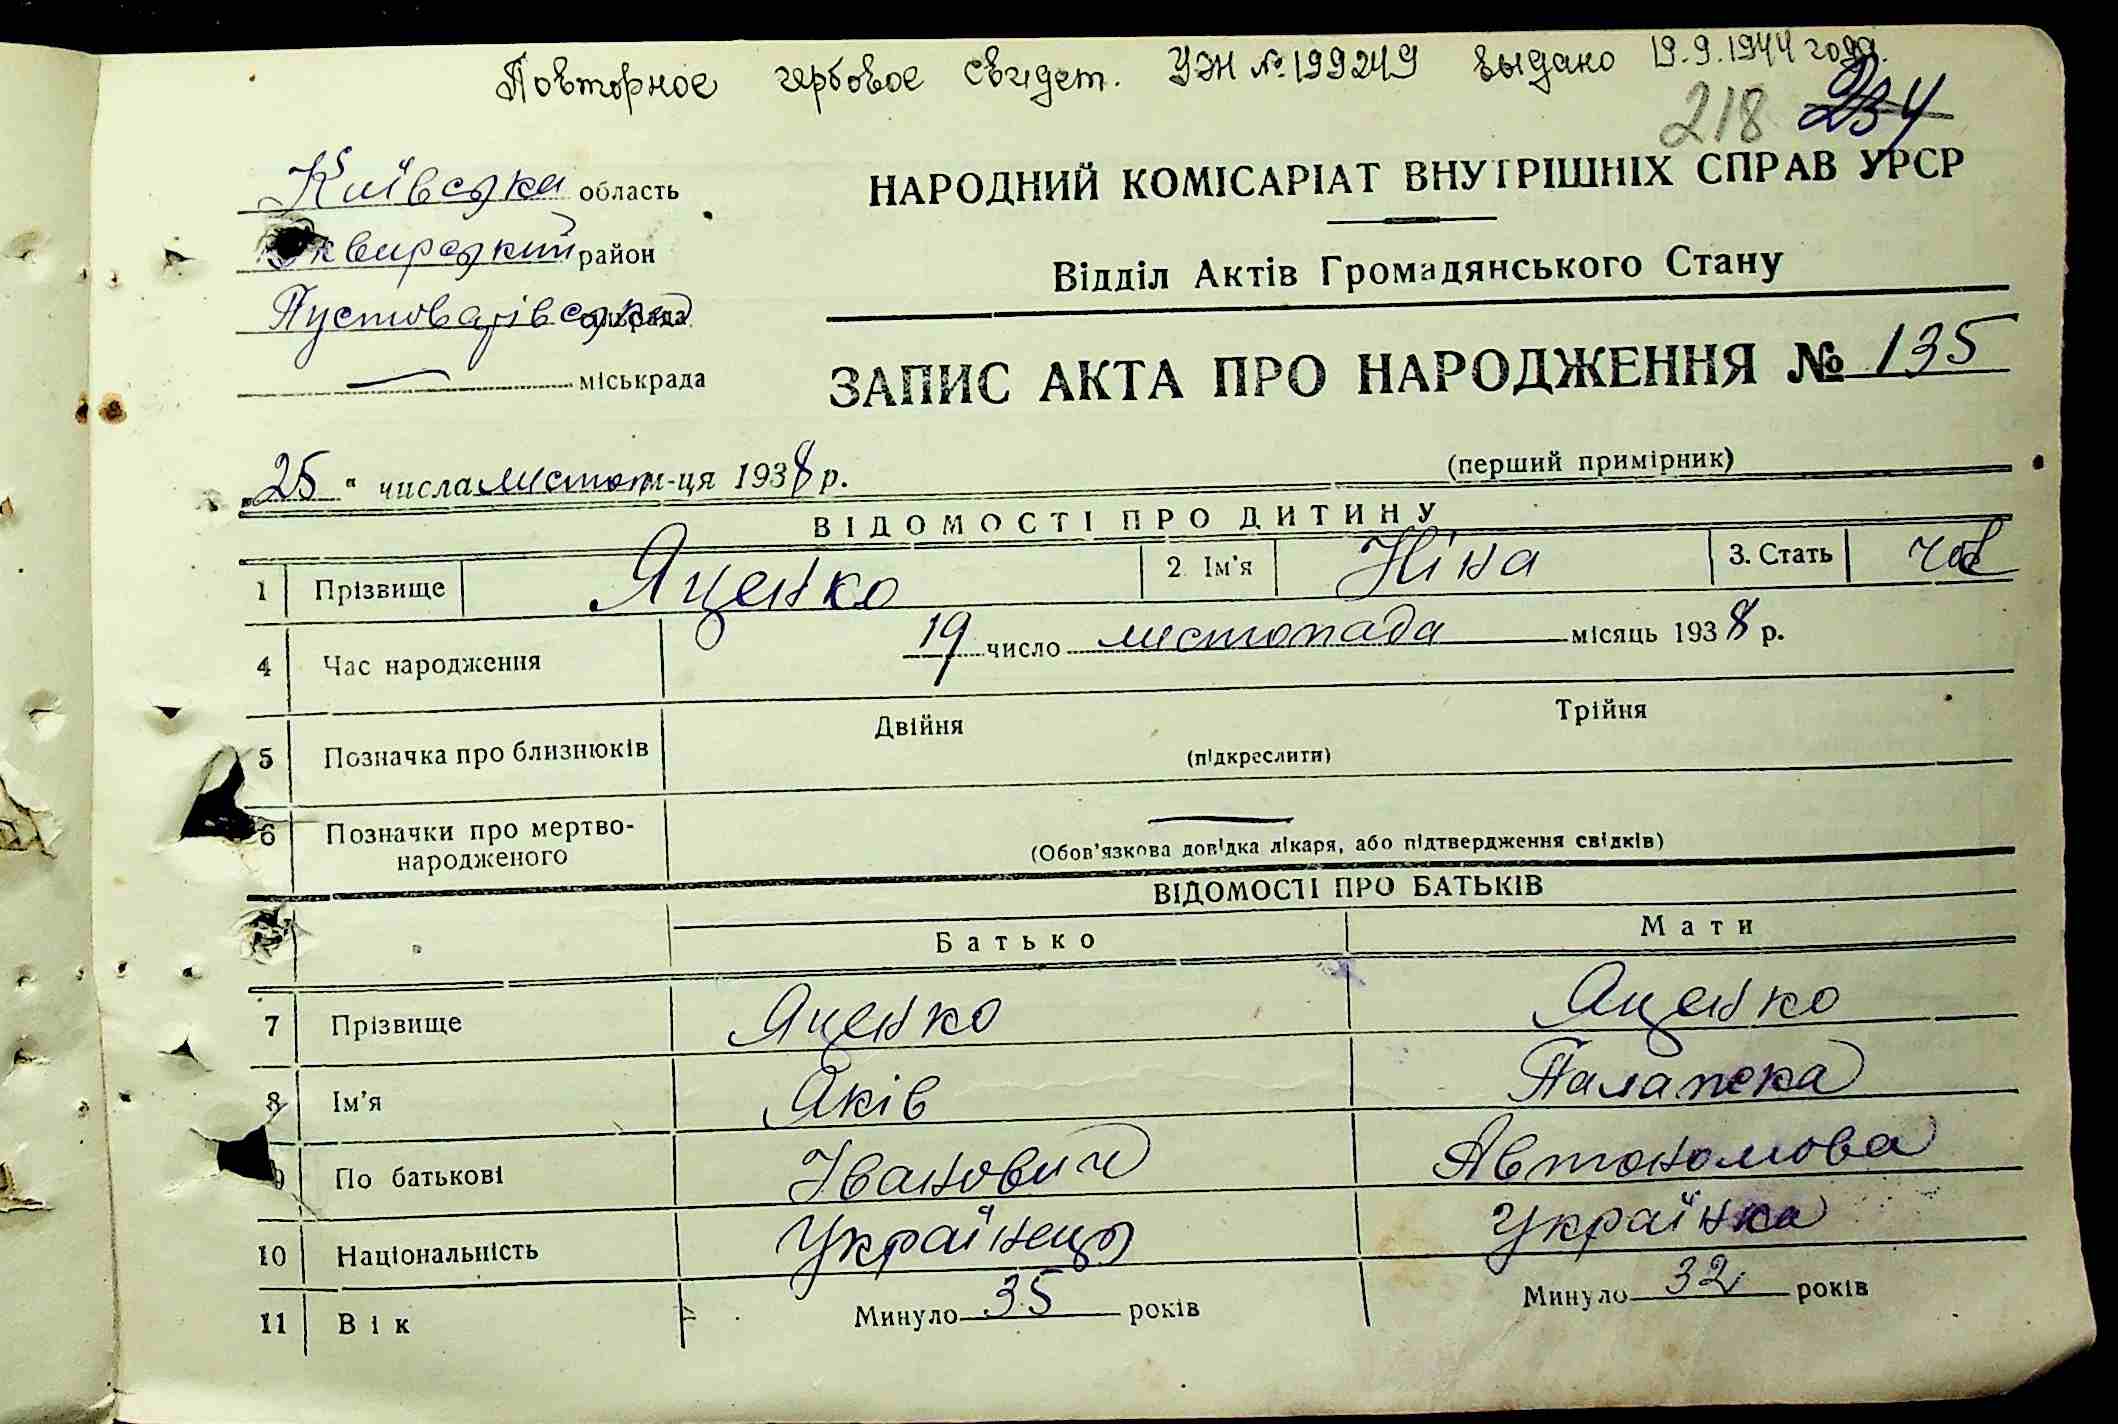 Повторное гербовое свидет. УЖ № 199249 выдано 19.9.1944 года.
218 234
Київська область
Сквирський район
Пустоварівська сільрада
міськрада
НАРОДНИЙ КОМІСАРІАТ ВНУТРІШНІХ СПРАВ УРСР
Відділ Актів Громадянського Стану
ЗАПИС АКТА ПРО НАРОДЖЕННЯ № 135
„25“ числа листоп м-ця 1938 р.
(перший примірник)
ВІДОМОСТІ ПРО ДИТИНУ
1 Прізвище Яценко 2. Ім'я Ніна 3. Стать чол
4 Час народження 19 число листопада місяць 1938 р.
5 Позначка про близнюків Двійня Трійня
(підкреслити)
6 Позначки про мертво-
народженого
(Обов'язкова довідка лікаря, або підтвердження свідків)
ВІДОМОСТІ ПРО БАТЬКІВ
Батько Мати
7 Прізвище Яценко Яценко
8 Ім'я Яків Палажка
9 По батькові Іванович Автономова
10 Національність Українець Українка
11 Вік Минуло 35 років Минуло 32 років